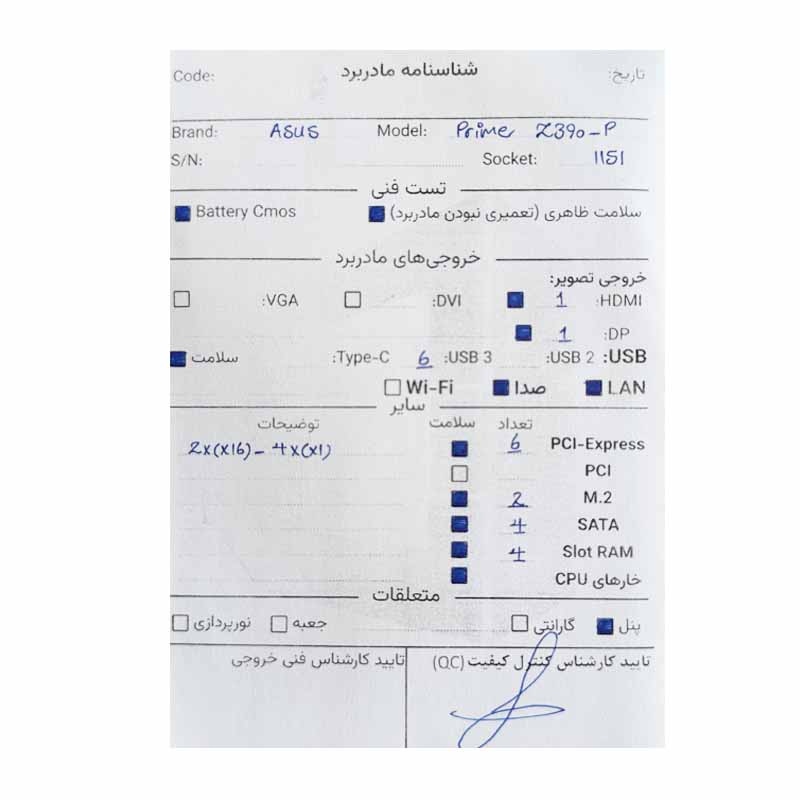 شناسنامه مادربرد
تاریخ:
Code:
Brand: ASUS Model: Prime Z390-P
S/N: Socket: 1151
تست فنی
سلامت ظاهری (تعمیری نبودن مادربرد) Battery Cmos
خروجی‌های مادربرد
خروجی تصویر:
HDMI: 1 DVI: VGA:
DP: 1
USB: USB 2: USB 3: 6 Type-C: سلامت
LAN صدا Wi-Fi
سایر
تعداد سلامت توضیحات
PCI-Express 6 2x(x16) - 4x(x1)
PCI
M.2 2
SATA 4
Slot RAM 4
خارهای CPU
متعلقات
پنل گارانتی جعبه نورپردازی
تایید کارشناس کنترل کیفیت (QC) تایید کارشناس فنی خروجی